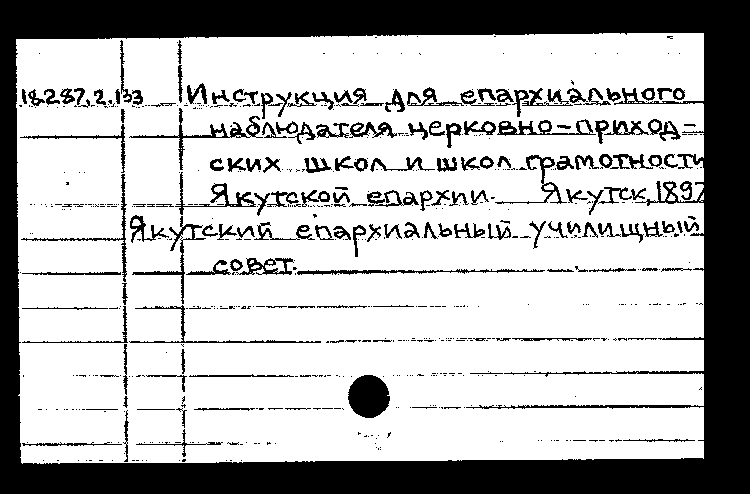 18.287.2.133 Инструкция для епархиального
наблюдателя церковно-приход-
ских школ и школ грамотности
Якутской епархии. Якутск, 1897
Якутский епархиальный училищный
совет.